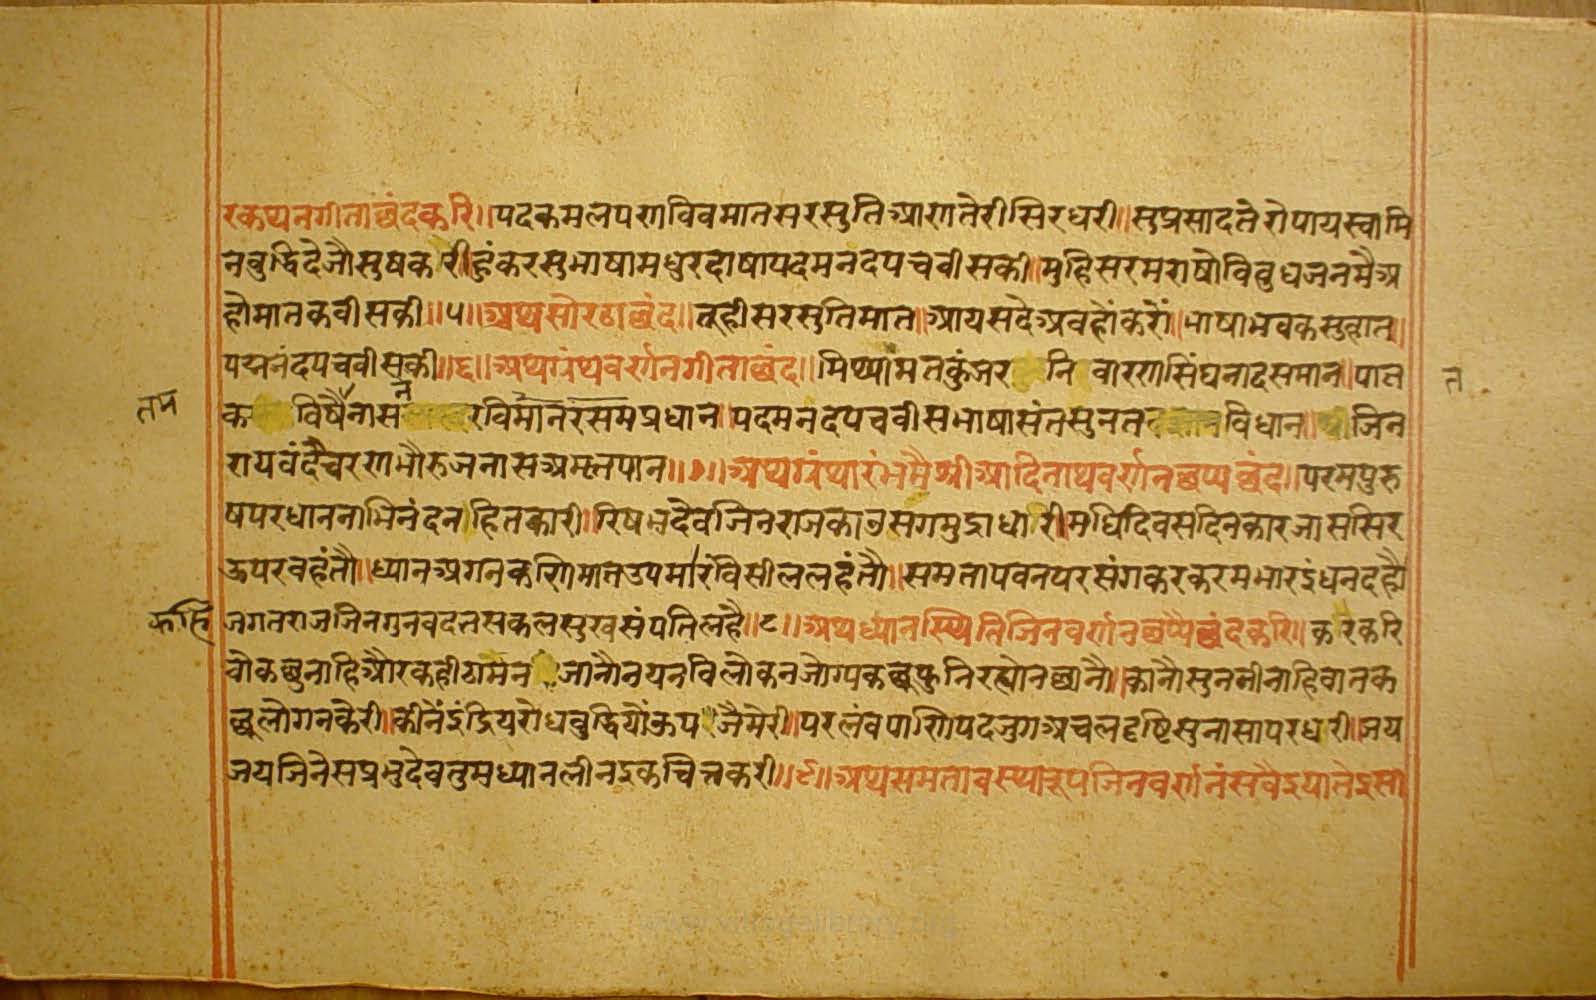 रकथनगीताछंदकरि॥पदकमलपराविवमातसरसुतिआरातेरीसिरधरी॥सुप्रसादतेरोपायस्वामि
नबुद्धिदेजौसुषकरी॥हुंकरसुभाषामधुरदाषापदमनदपचवीसकी॥मुहिसरमराषोविबुधजनमैअ
होमातकवीसकी॥५॥अथसोरठाछंद॥तूहीसरसुतिमात॥आयसदेअवहौंकरौं॥भाषाभवकसुहात॥
पद्मनंदपचवीसकी॥६॥अथग्रंथवर्णनगीताछंद॥मिथ्यामतकुंजर निवारणसिंघनादसमान॥पात
क विषैनासन रविमानरसमप्रधान॥पदमनदपचवीसभाषासंतसुनत विधान॥ जिन
रायवंदैचरणभौरुजनासअमृतपान॥७॥अथग्रंथारंभमैश्रीआदिनाथवर्णनछप्पछंद॥परमपुरु
षपरधाननाभिनंदनहितकारी॥रिषभदेवजिनराजकाउसगमुद्राधारी॥मधिदिवसदिनकारजाससिर
ऊपरवहंतौ॥ध्यानअगनकणिमातउपमारविसीललहंतौ॥समतापवनपरसंगकरकरमभारइंधनदहौ
जगतराजजिनगुनवदतसकलसुखसंपतिलहै॥८॥अथध्यानस्थितिजिनवर्णनछप्पैछंदकरि॥करकरि
वोकछुनाहिऔरकहीठामेन जानौनयनविलोकनजोग्पकछूफुनिरह्योनछानौ॥कानौसुनतीनाहिवातक
छूलोगनकेरी॥कीनैंइंद्रियरोधबुद्धियौंऊप जैमेरी॥परलंवपाणिपदजुगअचलदृष्टिसुनासापरधरी॥जय
जयजिनेसप्रभुदेवतुमध्यानलीनइकचित्तकरी॥९॥अथसमतावस्थारूपजिनवर्णनंसवैइयातेइसा
तम
त
कहि